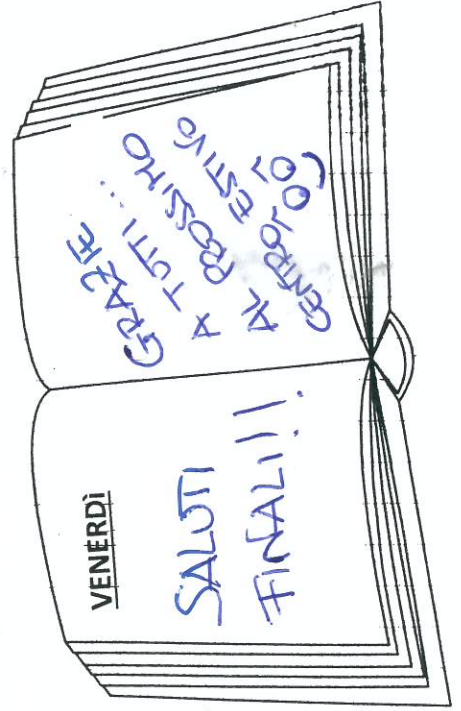 VENERDÌ
SALUTI
FINALI!!
GRAZIE
A TUTTI...
AL PROSSIMO
CENTRO ESTIVO